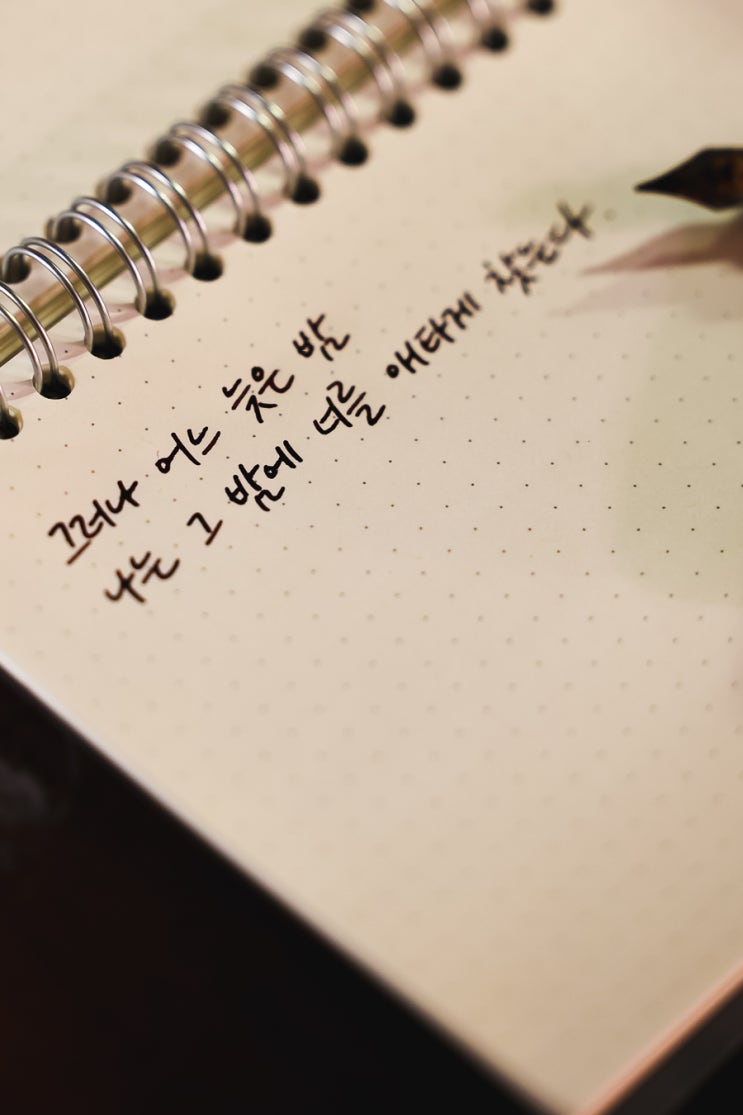 그러나 어느 늦은 밤
나는 그 밤에 너를 애타게 찾는다